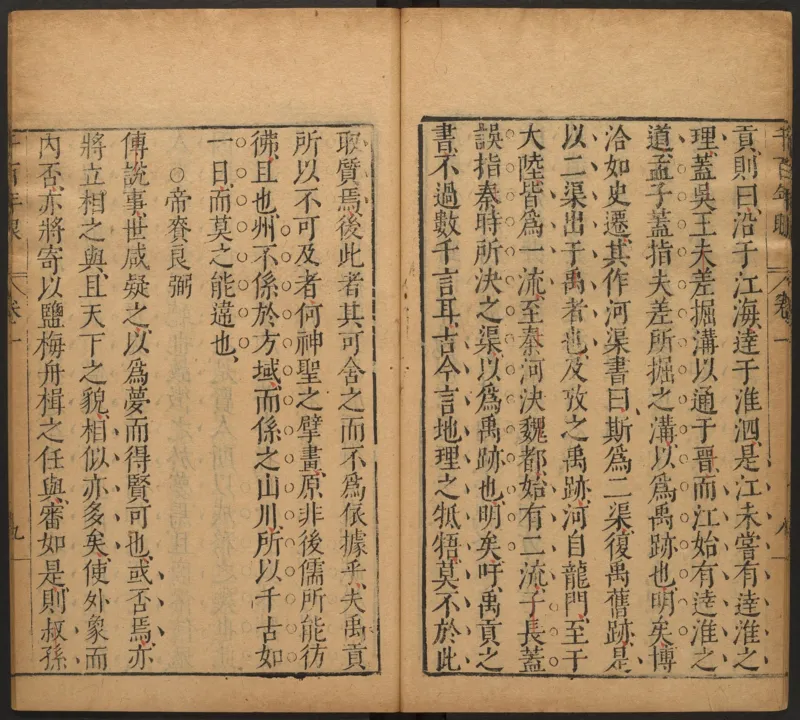 貢則曰沿于江海達于淮泗是江未嘗有達淮之
理蓋吳王夫差掘溝以通于晉而江始有達淮之
道孟子蓋指夫差所掘之溝以爲禹跡也明矣博
洽如史遷其作河渠書曰斯爲二渠復禹舊跡是
以二渠出于禹者也及攷之禹跡河自龍門至于
大陸皆爲一流至秦河決魏都始有二流子長蓋
誤指秦時所決之渠以爲禹跡也明矣吁禹貢之
書不過數千言耳古今言地理之牴牾莫不於此
取質焉後此者其可舍之而不爲依據乎夫禹貢
所以不可及者何神聖之擘畫原非後儒所能彷
彿且也州不係於方域而係之山川所以千古如
一日而莫之能違也
○帝賚良弼
傳說事世咸疑之以爲夢而得賢可也或否焉亦
將立相之與且天下之貌相似亦多矣使外象而
內否亦將寄以鹽梅舟楫之任與審如是則叔孫
卷一
九